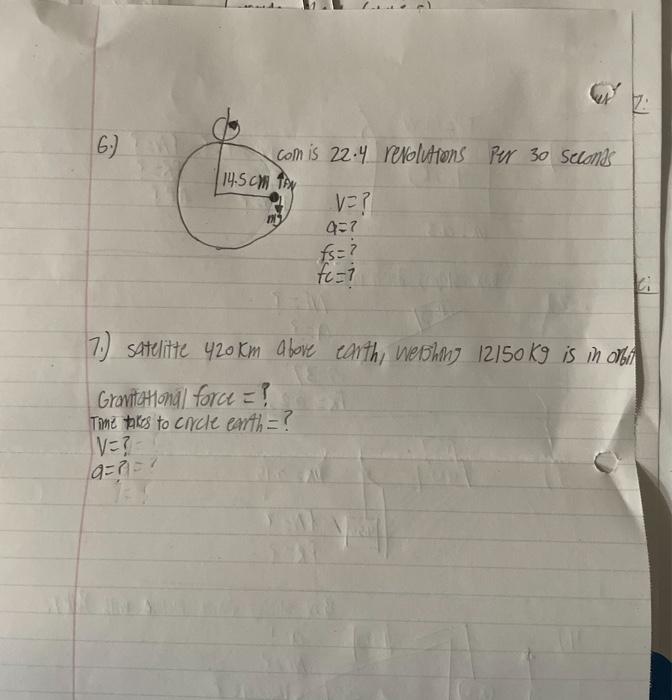 6.)
com is 22.4 revolutions Per 30 seconds
14.5cm FN
mg
V=?
a=?
fs=?
fc=?
7.) satelitte 420 Km above earth, weighing 12150 Kg is in orbit
Gravitational force = ?
Time takes to circle earth = ?
V=?
a=?